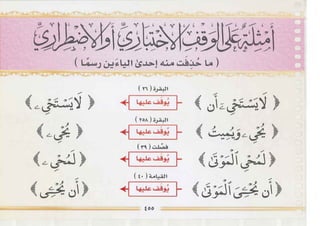 أَمْثِلَةٌ عَلَى الوَقْفِ الاخْتِبَارِيِّ أَو الاضْطِرَارِيِّ
( ما حُذِفَت منه إحدىٰ الياءَين رسمًا )
البقرة ( ٢٦ )
﴿ لَا يَسْتَحْىِۦٓ أَن ﴾ يُوقَف عليها ﴿ لَا يَسْتَحْىِۦ ﴾
البقرة ( ٢٥٨ )
﴿ يُحْىِۦ وَيُمِيتُ ﴾ يُوقَف عليها ﴿ يُحْىِۦ ﴾
فصّلت ( ٣٩ )
﴿ لَمُحْىِ الْمَوْتَىٰ ﴾ يُوقَف عليها ﴿ لَمُحْىِۦ ﴾
القيامة ( ٤٠ )
﴿ أَن يُحْـِۧىَ الْمَوْتَىٰ ﴾ يُوقَف عليها ﴿ أَن يُحْـِۧى ﴾
٤٥٥